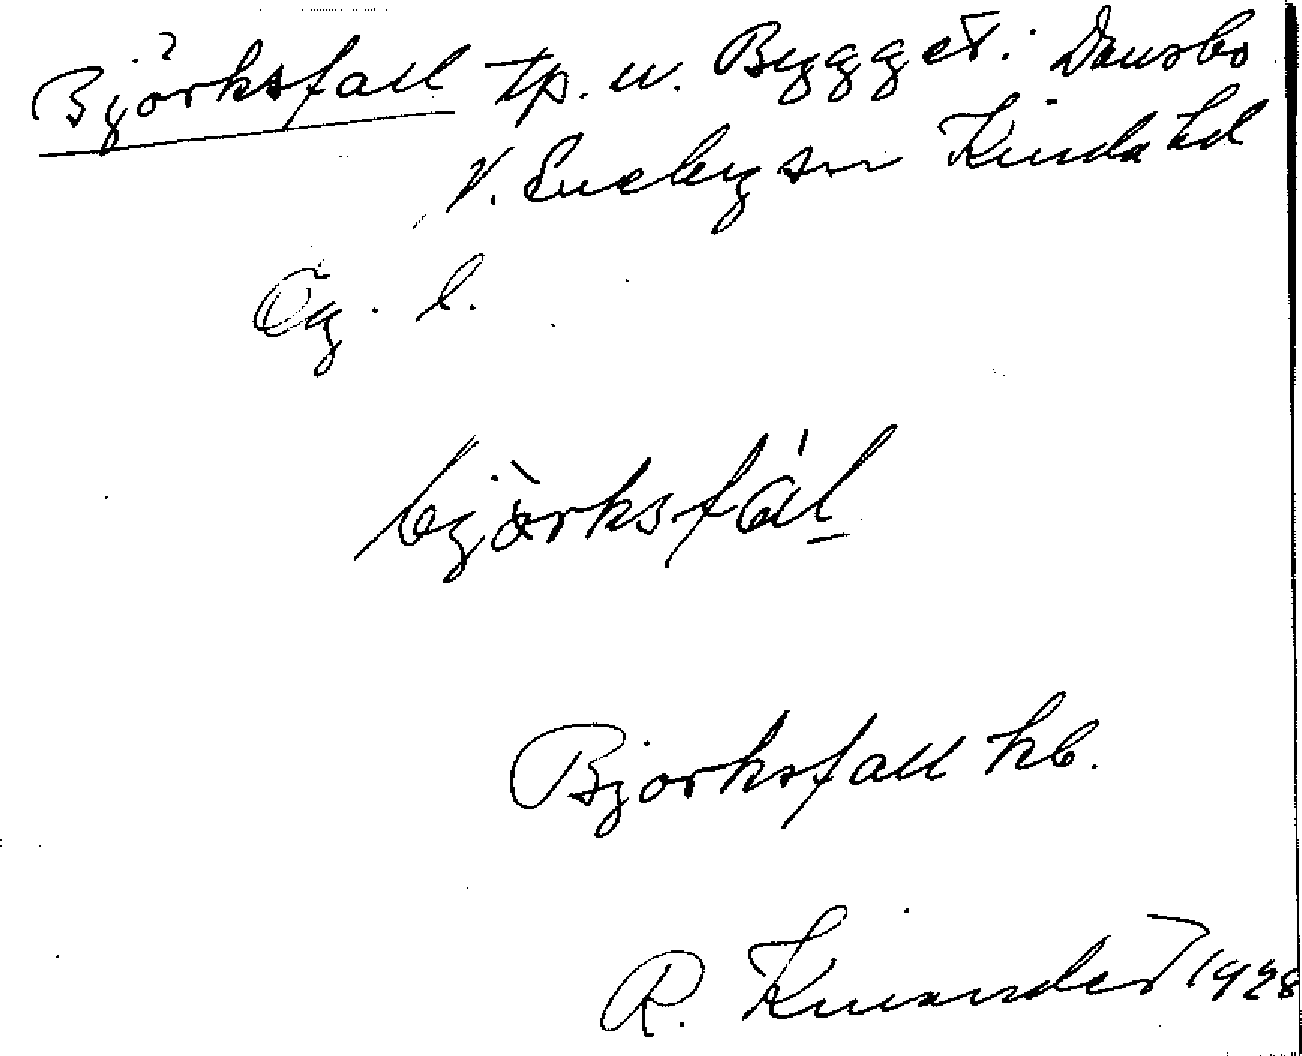 Björksfall tp. u. Bygget. Dansbo
V. Eneby sn Kinda hd
Ög. l.
bjòrksfál
Bjorksfall kb.
R. Kinander 1928